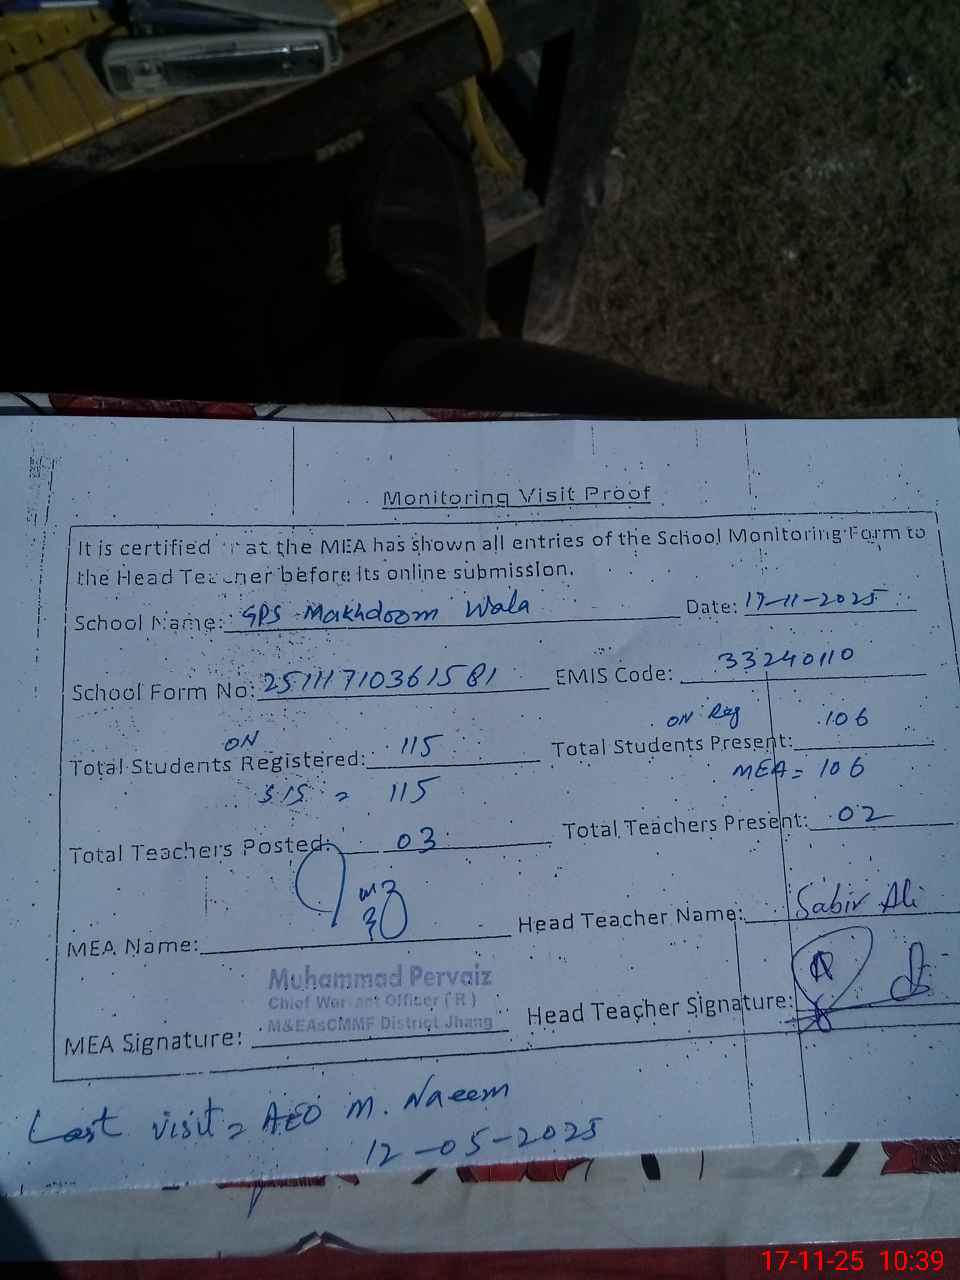 Monitoring Visit Proof
It is certified that the MEA has shown all entries of the School Monitoring Form to
the Head Teacher before its online submission.
School Name: GPS Makhdoom Wala Date: 17-11-2025
School Form No: 25111710361581 EMIS Code: 33240110
ON ON Reg
Total Students Registered: 115 Total Students Present: 106
SIS = 115 MEA = 106
Total Teachers Posted: 03 Total Teachers Present: 02
MEA Name: Head Teacher Name: Sabir Ali
Muhammad Pervaiz
Chief Warrant Officer (R)
M&EAsCMMF District Jhang
MEA Signature: Head Teacher Signature:
Last visit = AEO M. Naeem
12-05-2025
17-11-25 10:39